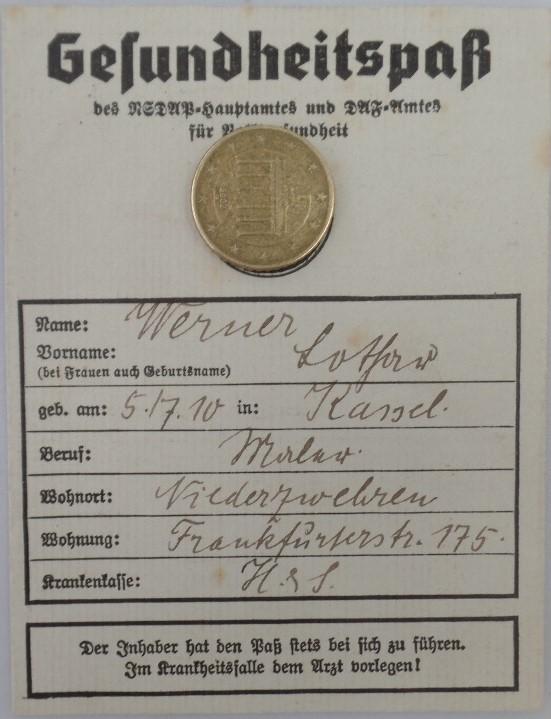 Gesundheitspaß
des NSDAP-Hauptamtes und DAF-Amtes
für
Name: Werner
Vorname: Lothar
(bei Frauen auch Geburtsname)
geb. am: 5.17.10 in: Kassel.
Beruf: Maler.
Wohnort: Niederzwehren
Wohnung: Frankfurterstr. 175.
Krankenkasse: H. & S.
Der Inhaber hat den Paß stets bei sich zu führen.
Im Krankheitsfalle dem Arzt vorlegen!